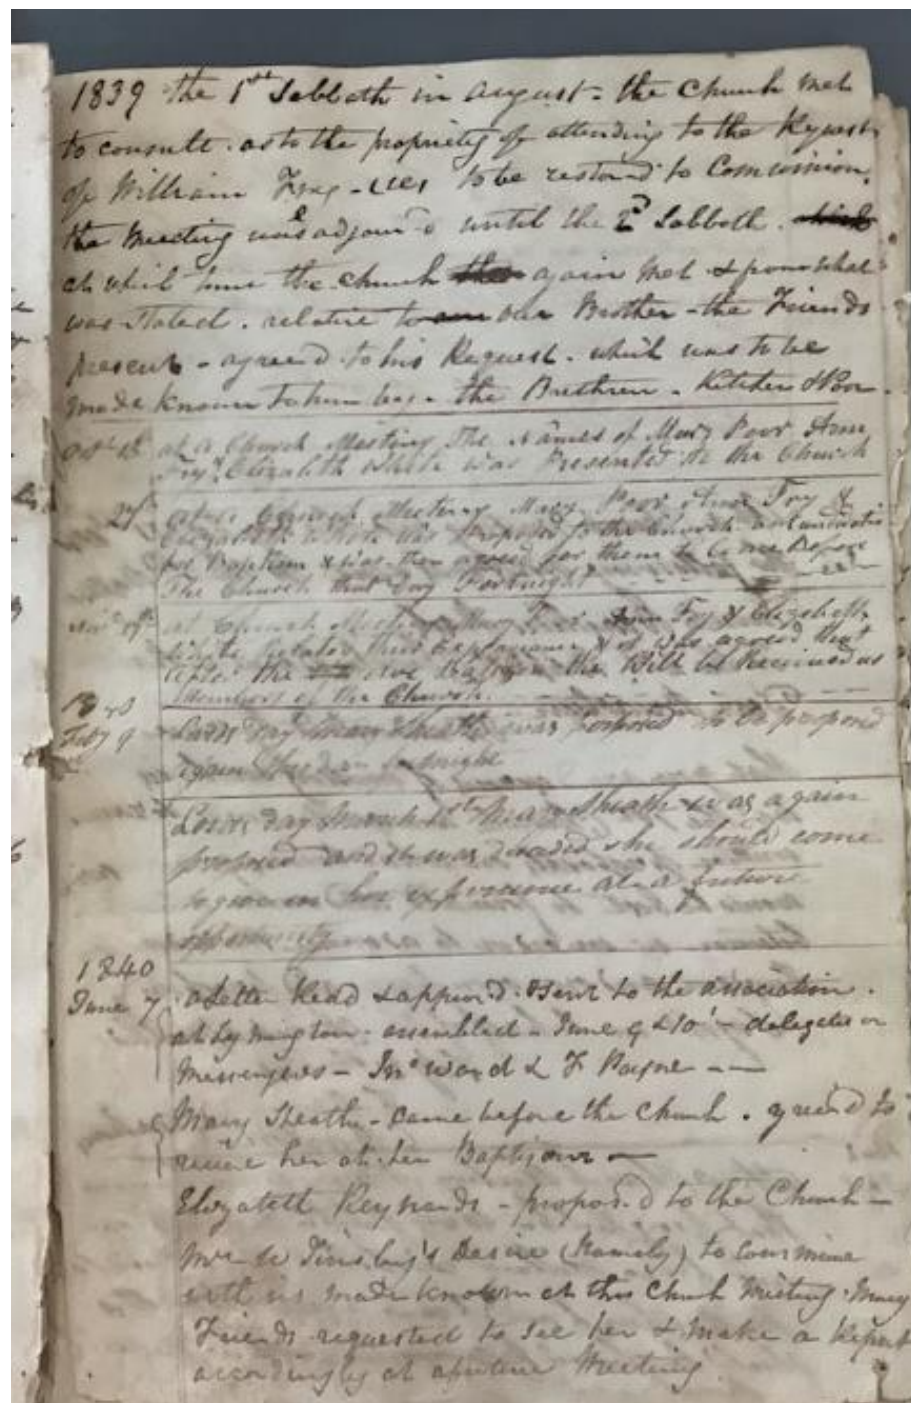 1839 the 1st Sabbath in august - the Church met
to consult. as to the propriety of attending to the Request
of William to be restord to Communion.
the Meeting was adjournd until the 2d Sabboth.
at which time the church again met &
was stated. relative to our Brother - the Friends
present - agreed to his Request. which was to be
made known to him by - the Brethren - Kitcher & Poor
at a Church Meeting The Names of Mary Poor Ann
Fry, Elizabeth White was Presented to the Church
27 at a Church Meeting Mary Poor Ann Fry &
Elizabeth White was Proposed to the Church as Candidates
for Baptism & was then agreed for them to Come Before
The Church that Day Fortnight
at Church Meeting Mary Poor Ann Fry & Elizabeth
White related their Experiance & it was agreed that
after the the Will be Received as
Members of the Church.
1840
Feby 9 Lords day Mary Sheath was proposed to be proposed
again fortnight
Lords day March 1st Mary Sheath was again
proposed and it was decided she should come
to give in her experience at a future
opportunity
1840
June 7 a Letter Read & approvd. Sent to the association.
at Lymington - assembled - June 9 & 10 - delegates or
Messengers - Jno Ward & F Payne - -
Mary Sheath - came before the Church. agreed to
recive her at her Baptism -
Elizabeth Reynards - proposd to the Church -
Mrs W Tinsley's Desire (Namely) to Commune
with us made known at this Church Meeting. Many
Friends requested to see her & make a Report
accordingly at a future Meeting